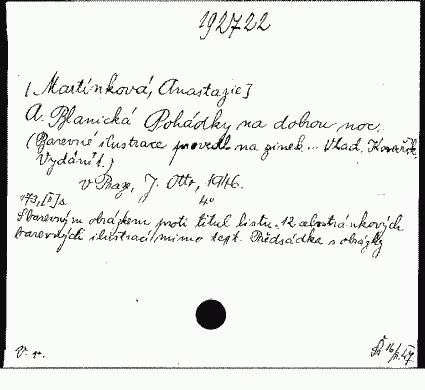 192722
[Martínková, Anastazie]
A. Blanická Pohádky na dobrou noc.
(Barevné ilustrace provedl na zinek... Vlad. Kovařík.
Vydání 1.)
v Praze, J. Otto, 1946.
173, [II] s. 4°
S barevným obrázkem proti titul listu. 12 celostránkových
barevných ilustrací mimo text. Předsádka s obrázky
V. n.
16/5.47